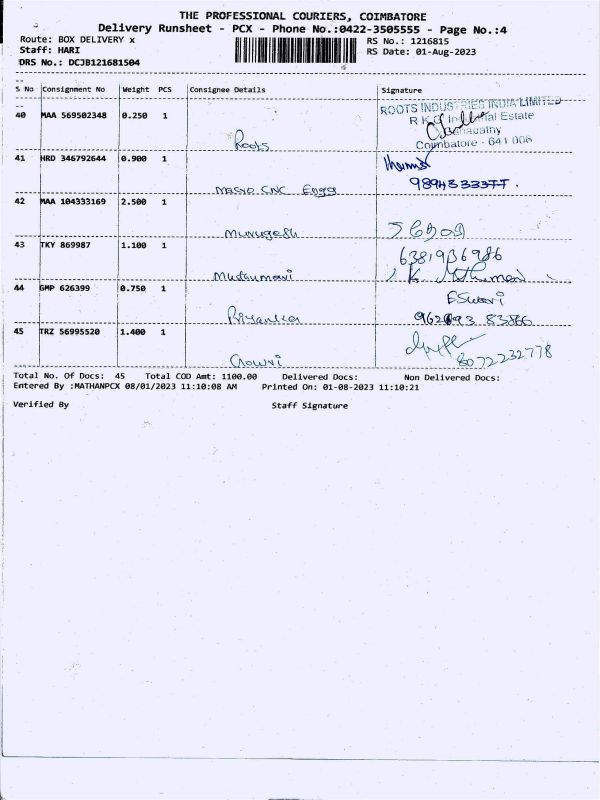 THE PROFESSIONAL COURIERS, COIMBATORE
Delivery Runsheet - PCX - Phone No.:0422-3505555 - Page No.:4
Route: BOX DELIVERY x RS No.: 1216815
Staff: HARI RS Date: 01-Aug-2023
DRS No.: DCJB121681504
S No Consignment No Weight PCS Consignee Details Signature
40 MAA 569502348 0.250 1 ROOTS INDUSTRIES INDIA LIMITED
R K G Industrial Estate
Ganapathy
Roots Coimbatore - 641 006
41 HRD 346792644 0.900 1
Macro CNC Engg 9894333377.
42 MAA 104333169 2.500 1
Murugesh
43 TKY 869987 1.100 1
Mutumari
44 GMP 626399 0.750 1 ESwari
Priyanka
45 TRZ 56995520 1.400 1
Gowri 8072232778
Total No. Of Docs: 45 Total COD Amt: 1100.00 Delivered Docs: Non Delivered Docs:
Entered By :MATHANPCX 08/01/2023 11:10:08 AM Printed On: 01-08-2023 11:10:21
Verified By Staff Signature